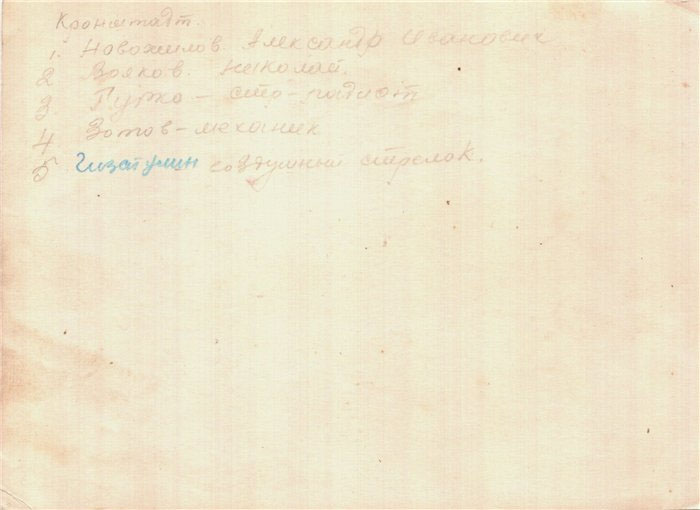 Кронштадт.
1. Новожилов. Александр Иванович
2 Вояков. Николай.
3 Гутко - радист
4 Зотов - механик
5 Гизатулин воздушный стрелок.